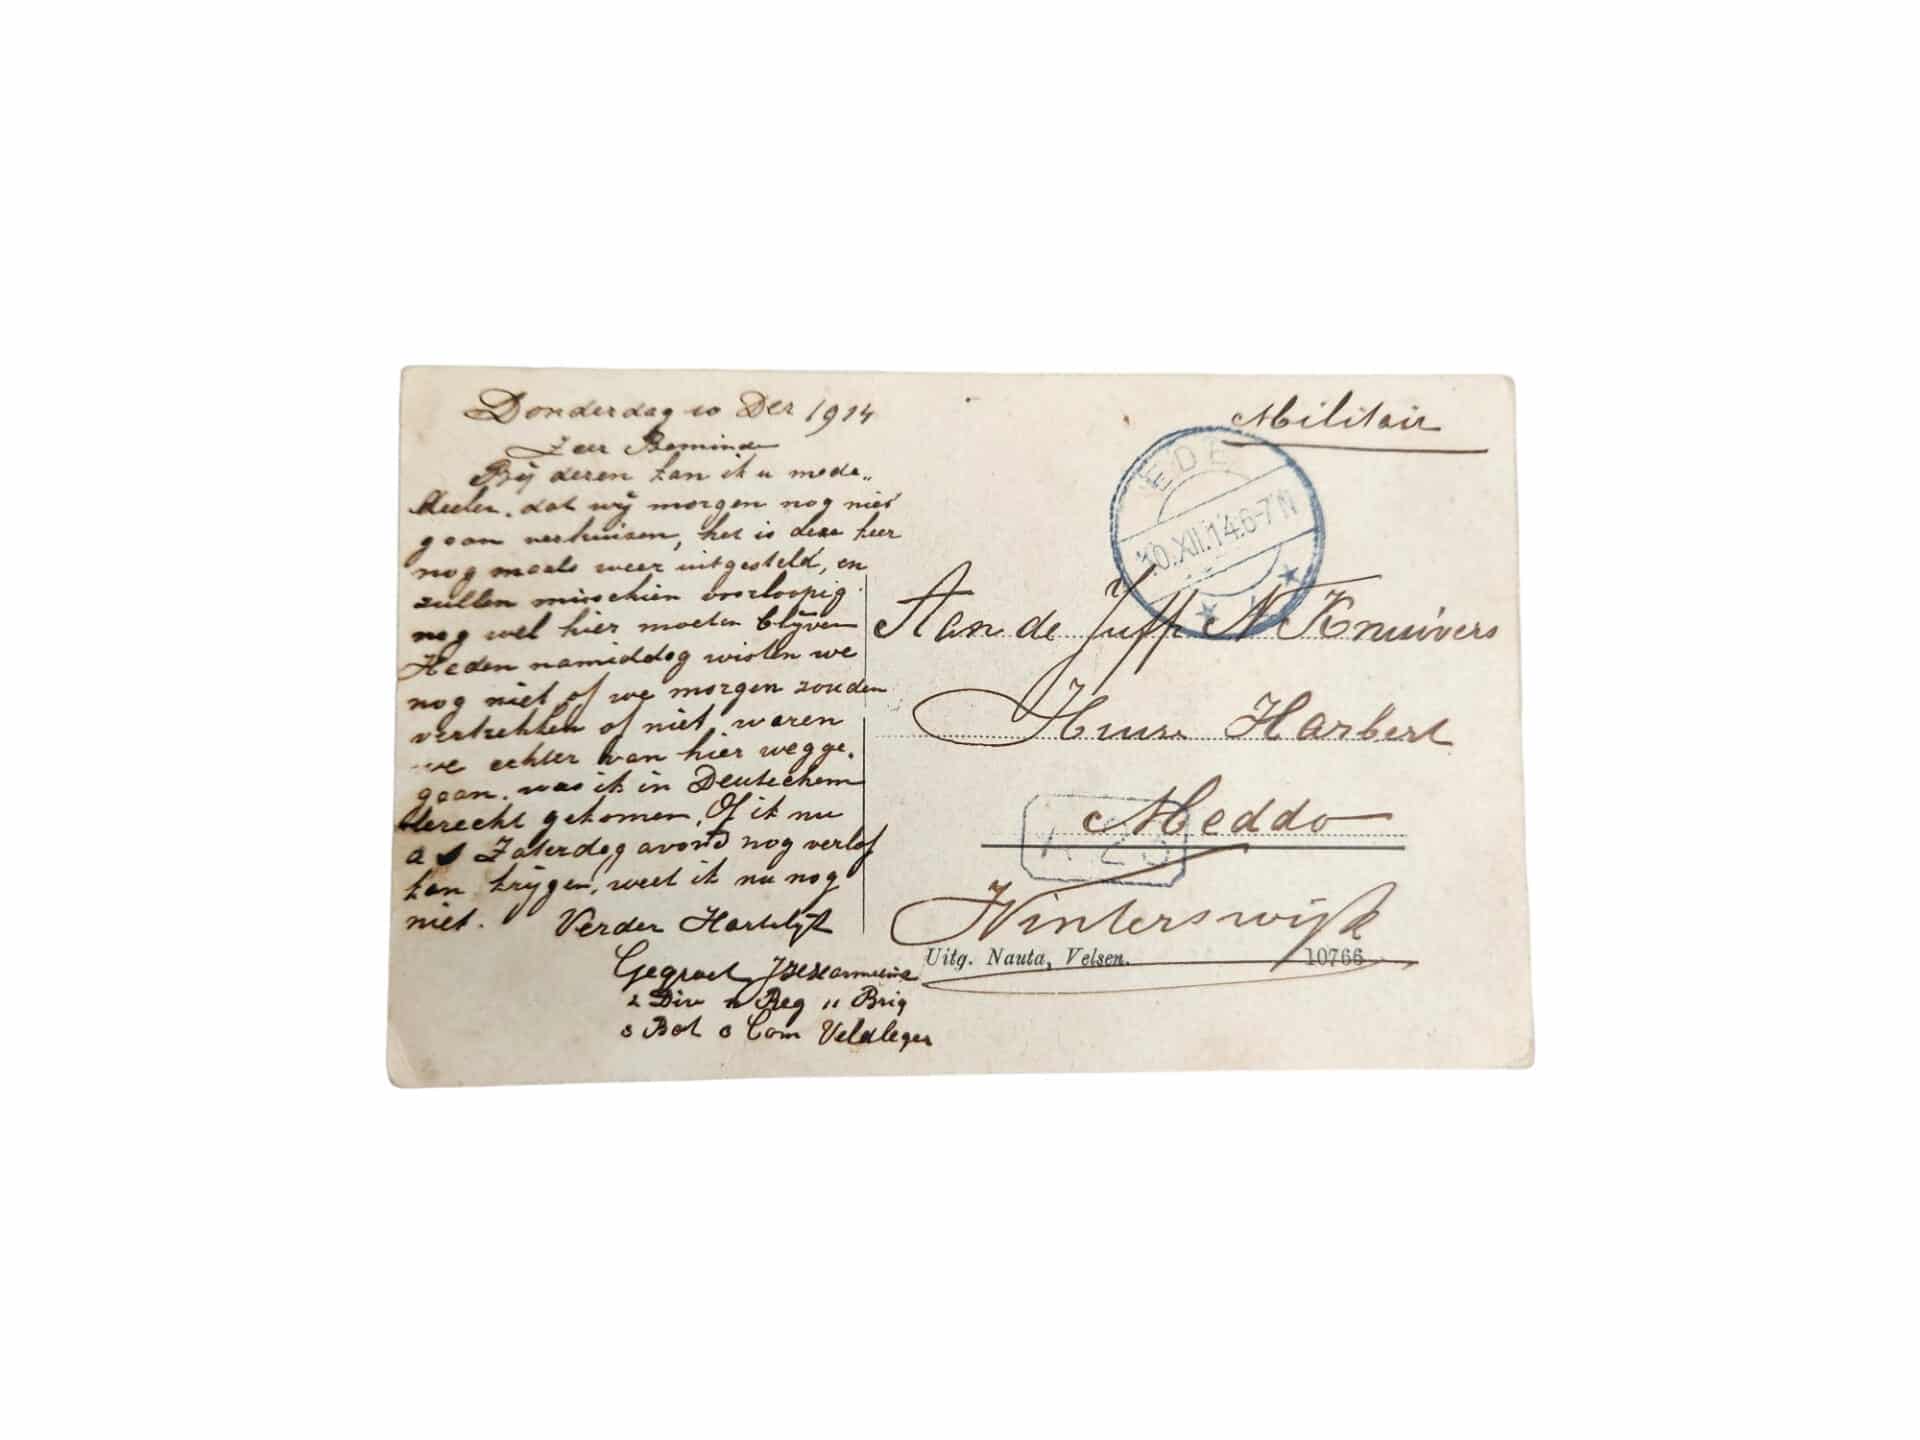 Donderdag 10 Dec 1914
Zeer Beminde
Bij deren kan ik u mede„
deelen. dat wij morgen nog niet
gaan verhuizen, het is deze keer
nog maals weer uitgesteld, en
zullen misschien voorloopig
nog wel hier moeten blijven
Heden namiddag wisten we
nog niet of we morgen zouden
vertrekken of niet, waren
we echter van hier wegge.
gaan. was ik in Deutechem
terecht gekomen, Of ik nu
a s Zaterdag avond nog verlof
kan krijgen, weet ik nu nog
niet. Verder Hartelijk
Gegroet
2 Div Reg 11 Brig
3 Bat 3 Com Veldleger
Militair
EDE
10.XII.14.6-7N
Aan de Juff N Knuivers
Huize Harbert
Meddo
Winterswijk
Uitg. Nauta, Velsen. 10766